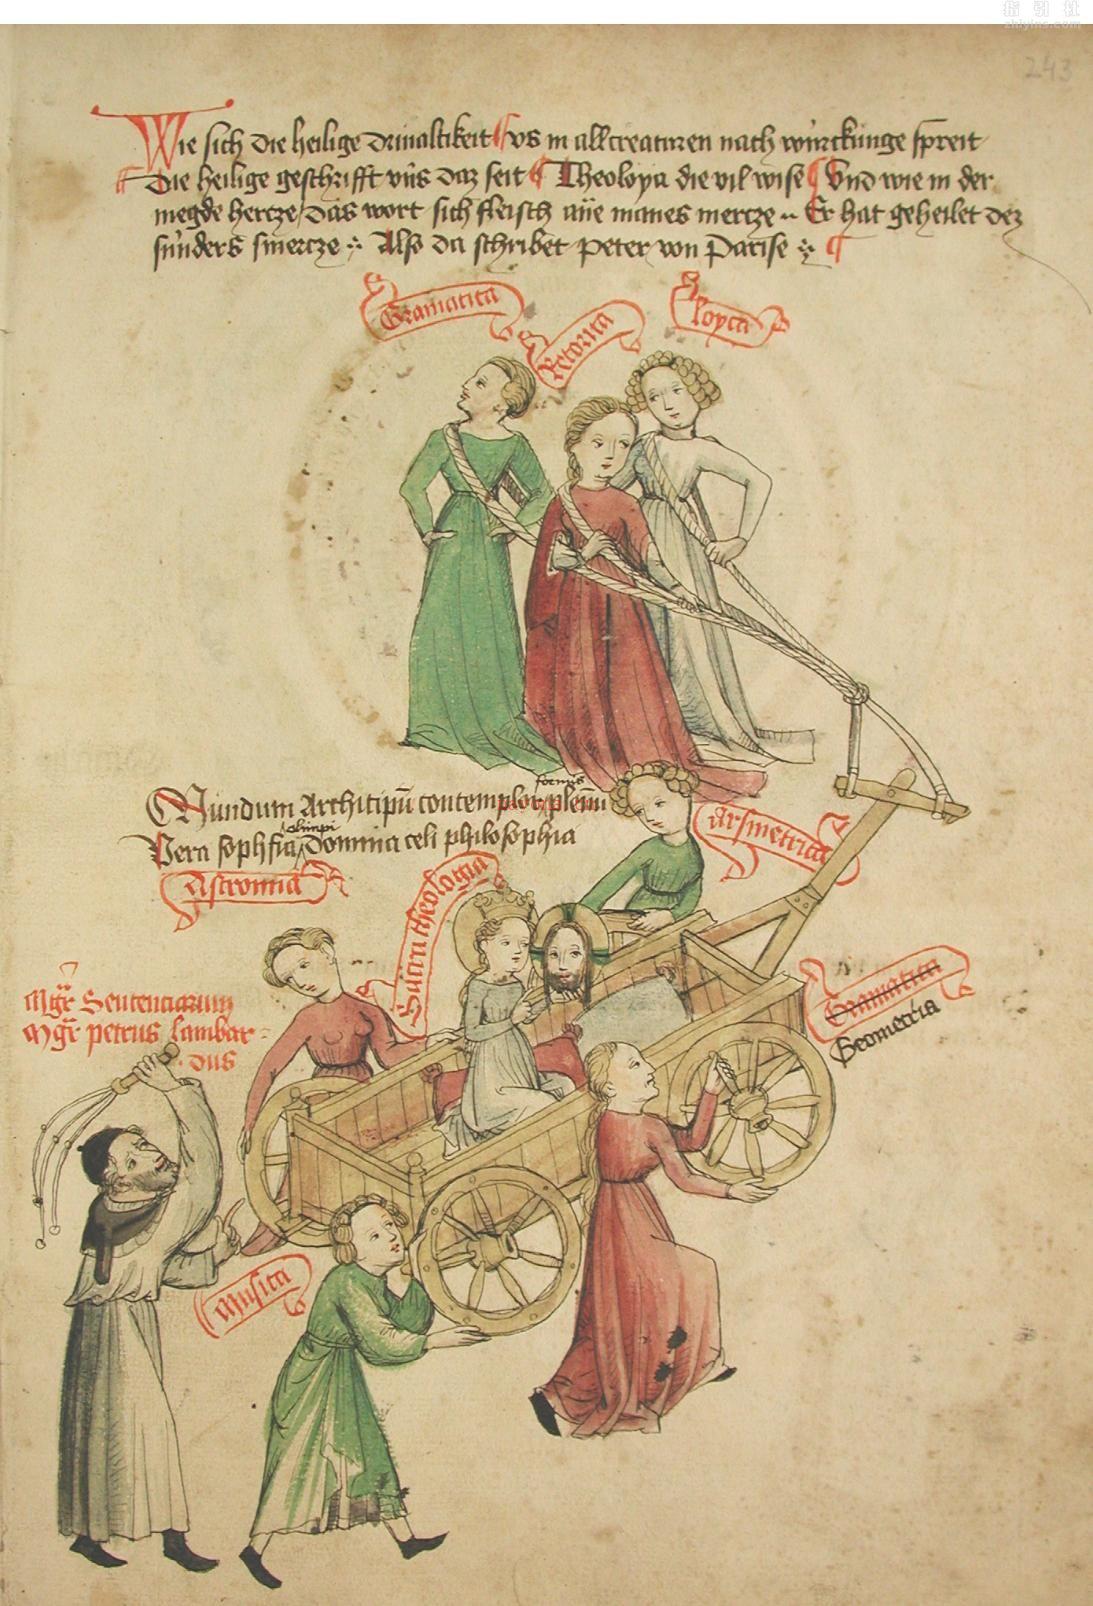 指引社
zhiyins.com
243
Wie sich die heilige drivaltikeit us in all creaturen nach würckunge spreit
Die heilige geschrifft vns daz seit Theoloya die vil wise Vnd wie in der
megde hertze das wort sich fleisch ane manes mertze Er hat geheilet dez
sunders smertze Also da schribet peter von Parise
Gramatica
Retorica
loyca
formis
Mundum Architipum contemplor plenum
olimpi
Vera sophia Domina celi philosophia
Arsmetrica
Astronmia
Sacra theologia
Gramatica
Geometria
Mgr Sententiarum
Mgr petrus lambar
dus
Musica